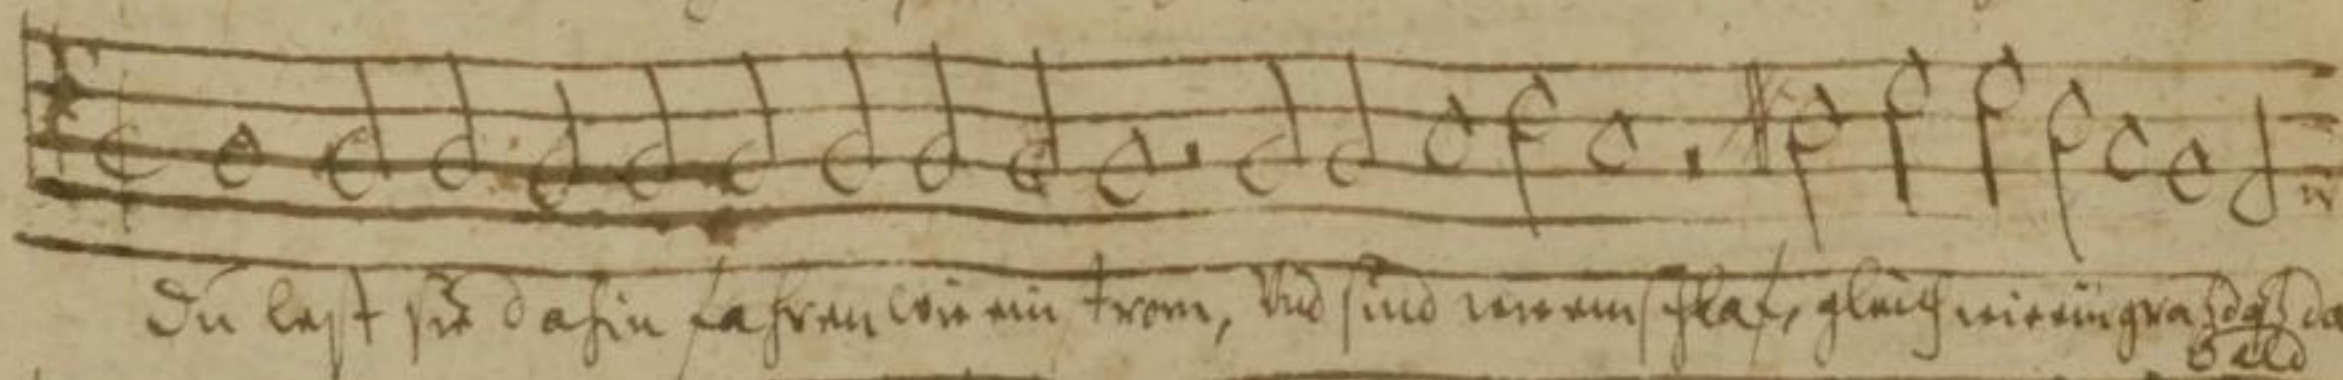 Du lest sie dahin fahren wie ein strom, Und sind wie ein schlaf, gleich wie ein gras das da
bald